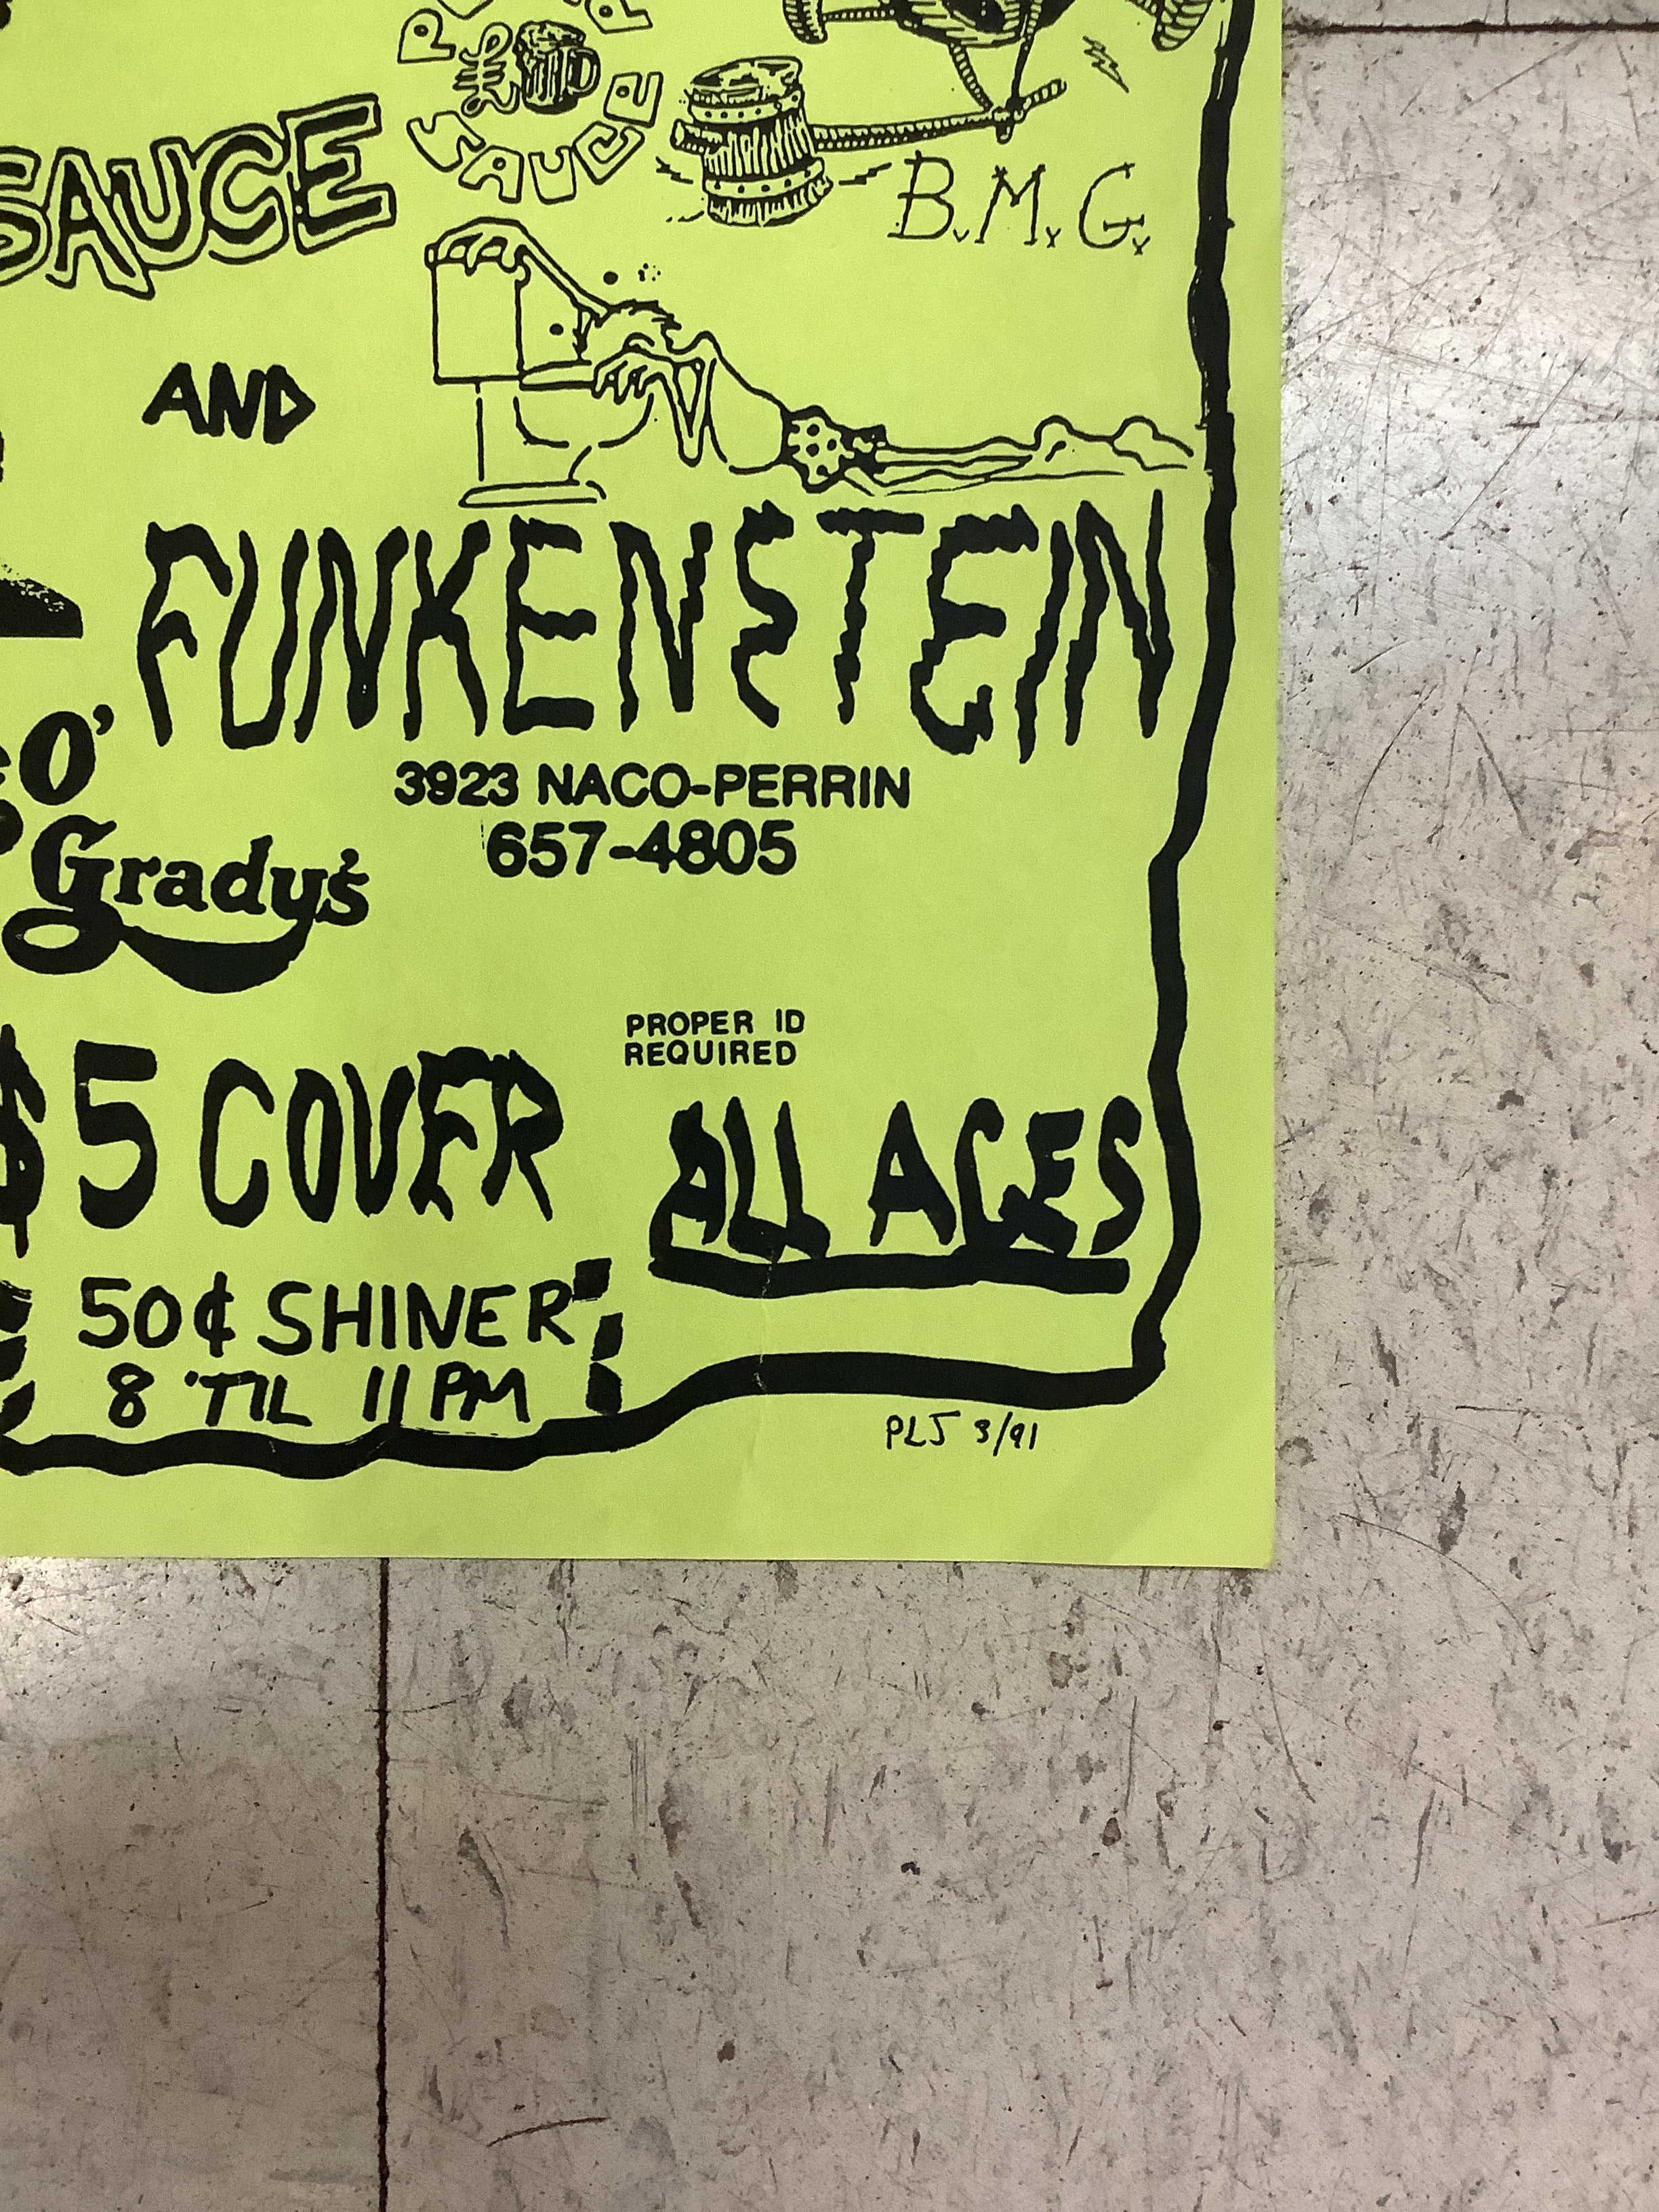 SAUCE
SAUCE
B.M.G.
AND
FUNKENSTEIN
3923 NACO-PERRIN
657-4805
O'
Grady's
PROPER ID
REQUIRED
$5 COVER
ALL AGES
50¢ SHINER
8 'TIL 11 PM
PLJ 3/91